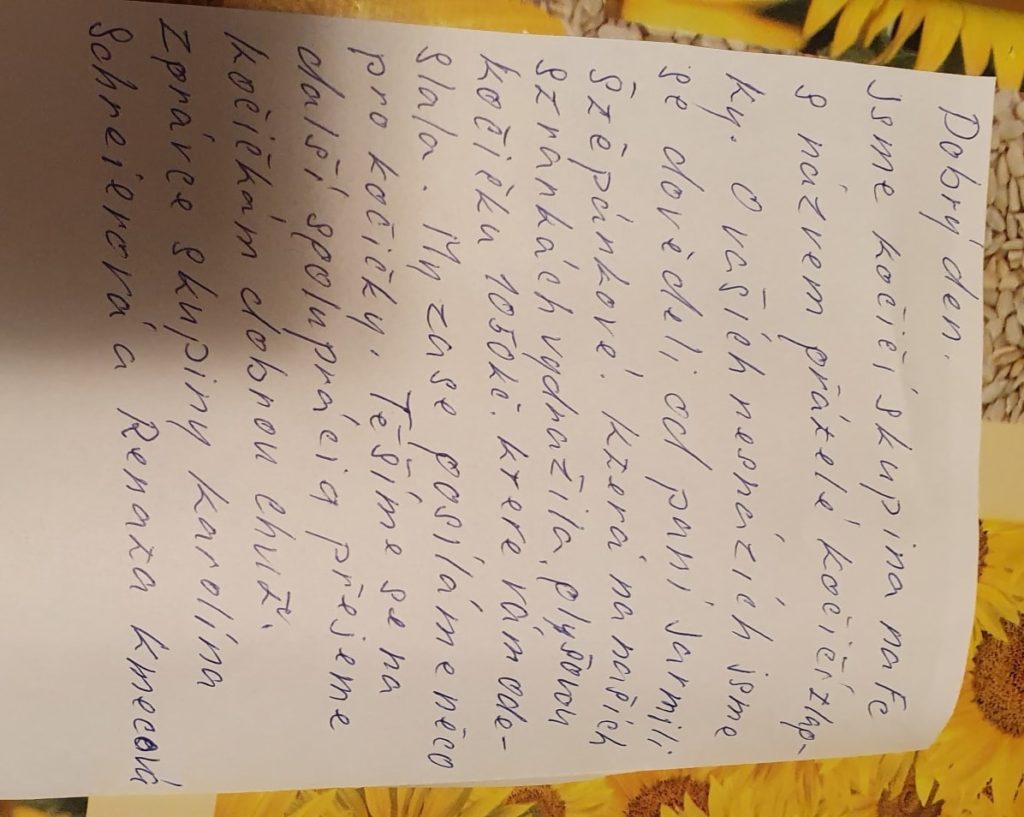 Dobrý den.
Jsme kočičí skupina na Fc
s názvem přátelé kočičí tlap-
ky. O vašich nesnázích jsme
se dověděli od paní Jarmili
Štěpánkové. která na našich
stránkách vydražila, plyšovou
kočičku 1050kč. které vám ode-
slala. My zase posíláme něco
pro kočičky. Těšíme se na
další spolupráci a přejeme
kočičkám dobrou chuť.
Zprávce skupiny karolína
Schreierová a Renata kmecová